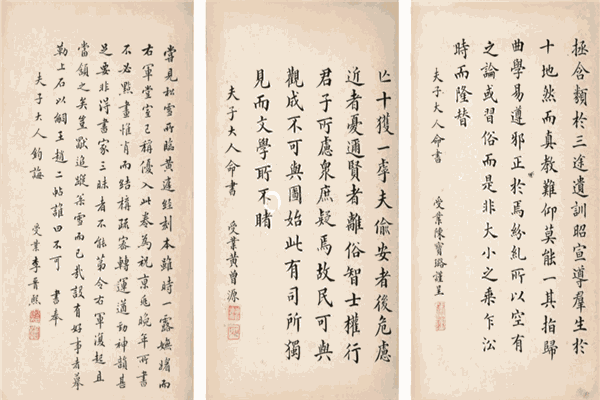 拯含類於三途遺訓昭宣導羣生於
十地然而真教難仰莫能一其指歸
曲學易遵邪正於焉紛糺所以空有
之論或習俗而是非大小之乘乍沿
時而隆替
夫子大人命書 受業陳寶璐謹呈
亾十獲一虖夫偷安者後危慮
近者憂邇賢者離俗智士權行
君子所慮衆庶疑焉故民可與
觀成不可與圖始此有司所獨
見而文學所不睹
夫子大人命書 受業黃曾源
嘗見松雪所臨黃庭經刻本雖時一露嫵媚而
右軍堂室已稱優入此卷為祝京兆晚年所書
不必點畫惟肖而結構疏密轉運遒動神韻具
足要非得書家三昧者不能苐令右軍復起且
當頷之矣豈獨追蹤松雪而已哉設有好事者摹
勒上石以嗣王趙二帖誰曰不可 書奉
夫子大人鈞誨 受業李晉熙